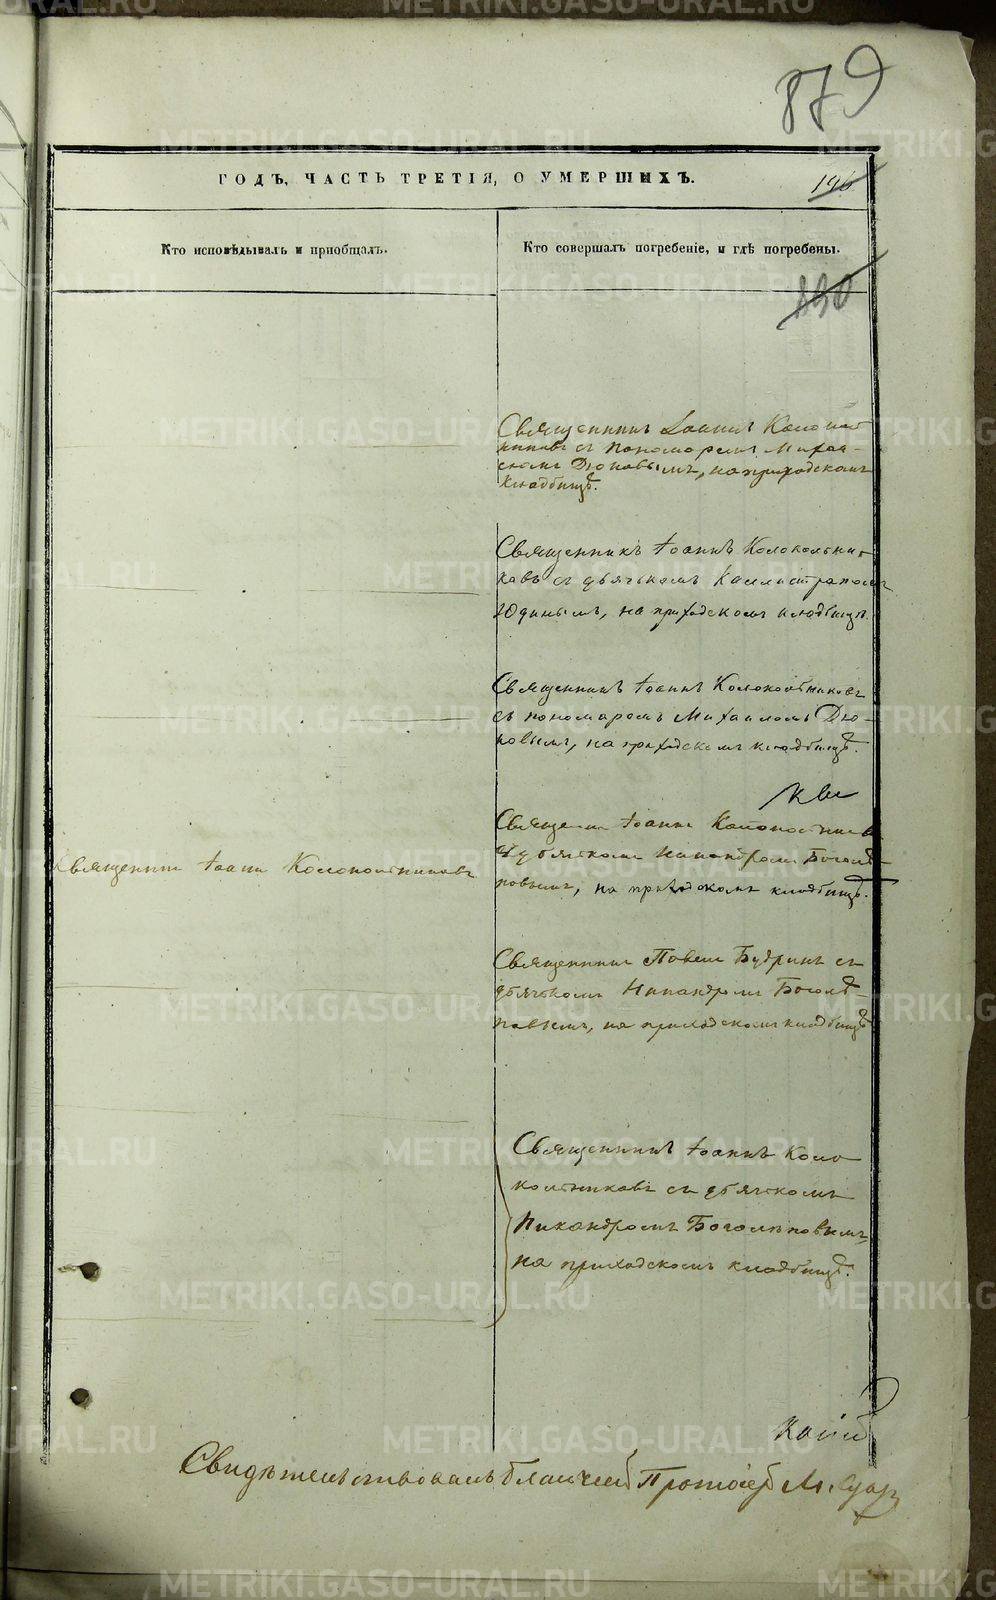 879
ГОДЪ, ЧАСТЬ ТРЕТІЯ, О УМЕРШИХЪ.
196
Кто исповѣдывалъ и приобщалъ.
Кто совершалъ погребеніе, и гдѣ погребены.
890
Священникъ Іоаннъ Колоколь
никовъ съ пономаремъ Михаи-
ломъ Дюковымъ, на приходскомъ
кладбищѣ.
Священникъ Іоаннъ Колокольни-
ковъ съ дьячкомъ Каллистратомъ
Юдинымъ, на приходскомъ кладбищѣ.
Священникъ Іоаннъ Колокольниковъ
съ пономаремъ Михаиломъ Дю-
ковымъ, на приходскомъ кладбищѣ.
Священникъ Іоаннъ Колокольников
дьячкомъ Никандромъ Боголѣ-
повымъ, на приходскомъ кладбищѣ.
Священникъ Іоаннъ Колокольниковъ
Священникъ Павелъ Будринъ съ
дьячкомъ Никандромъ Боголѣ-
повымъ, на приходскомъ кладбищѣ
Священникъ Іоаннъ Коло
кольниковъ съ дьячкомъ
Никандромъ Боголѣповымъ,
на приходскомъ кладбищѣ.
Свидѣтельствовалъ Протоіер М.
METRIKI.GASO-URAL.RU